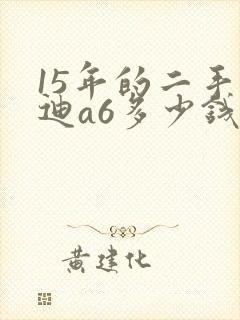 15年的二手
迪a6多少钱
黄建化